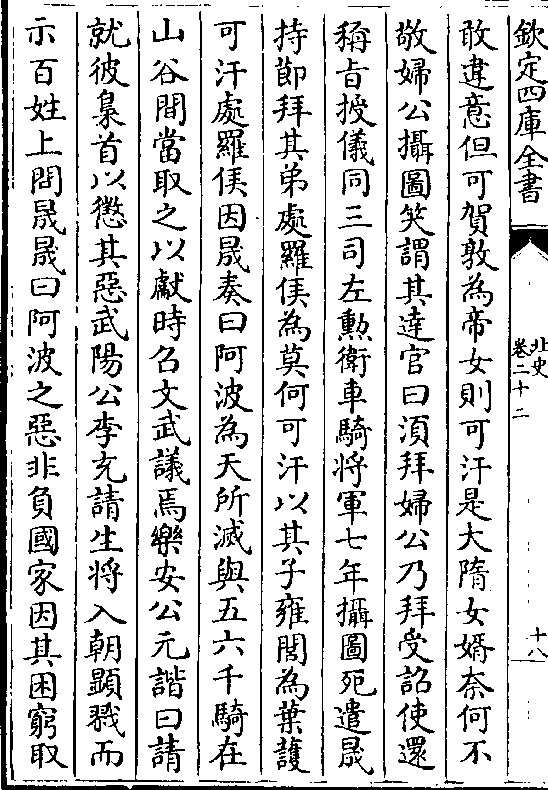 欽定四庫全書
北史
卷二十二
十八
敢違意但可賀敦為帝女則可汗是大隋女婿柰何不
敬婦公攝圖笑謂其達官曰湏拜婦公乃拜受詔使還
稱㫖授儀同三司左勲衛車騎將軍七年攝圖死遣晟
持節拜其弟處羅侯為莫何可汗以其子雍閭為葉護
可汗處羅侯因晟奏曰阿波為天所滅與五六千騎在
山谷間當取之以獻時召文武議焉樂安公元諧曰請
就彼梟首以懲其惡武陽公李充請生將入朝顯戮而
示百姓上問晟晟曰阿波之惡非負國家因其困窮取